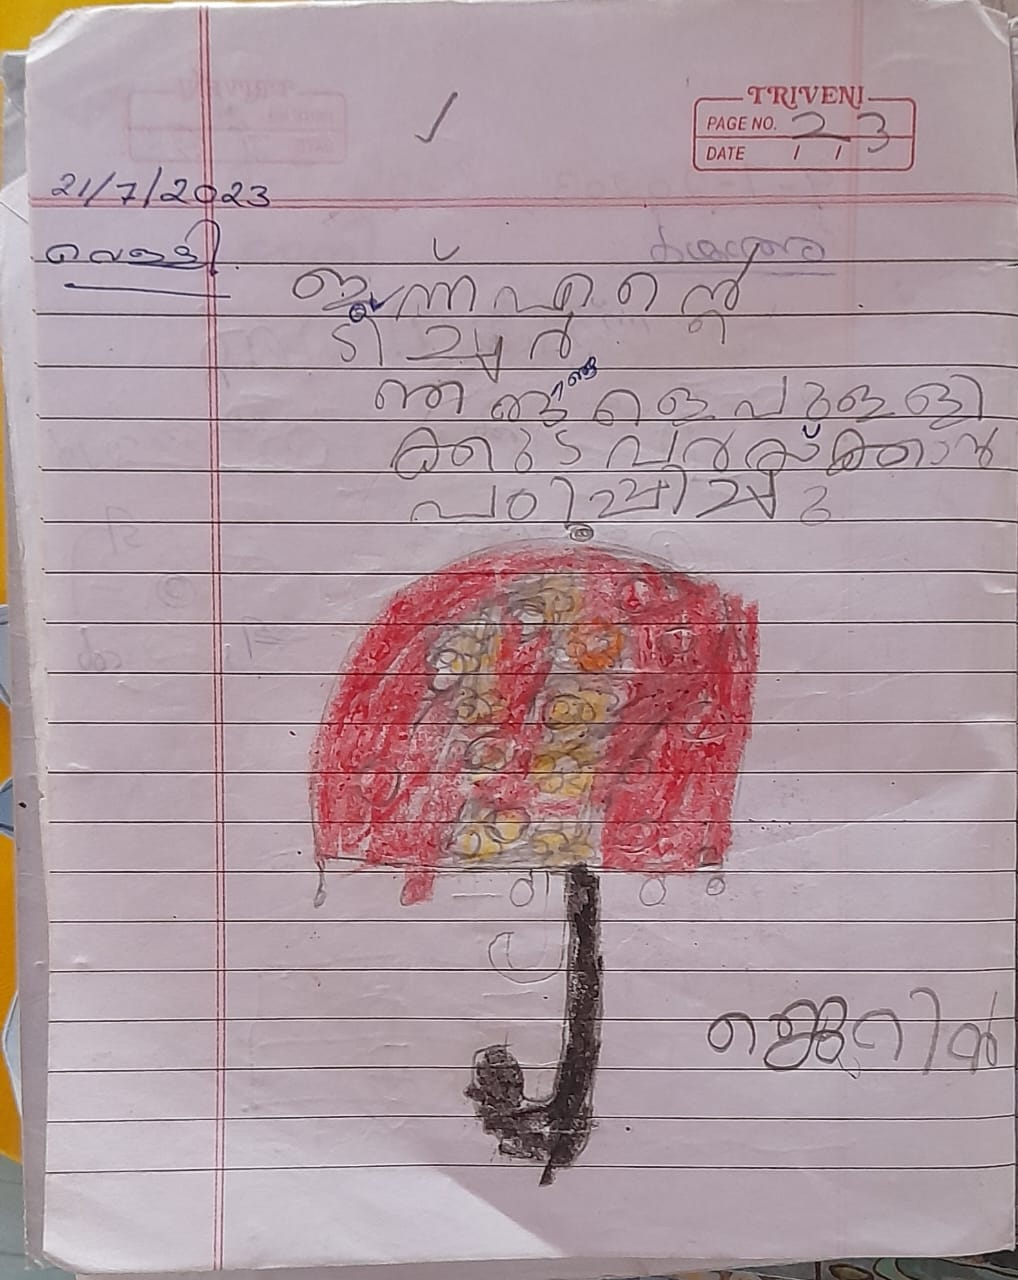 TRIVENI
PAGE NO. 23
DATE / /
21/7/2023
വെള്ളി
ഇന്ന് എന്റെ
ടീച്ചർ
ഞങ്ങളെ പുള്ളി
ക്കുട വരക്കാൻ
പഠിച്ചിച്ചു
ജെറിൻ